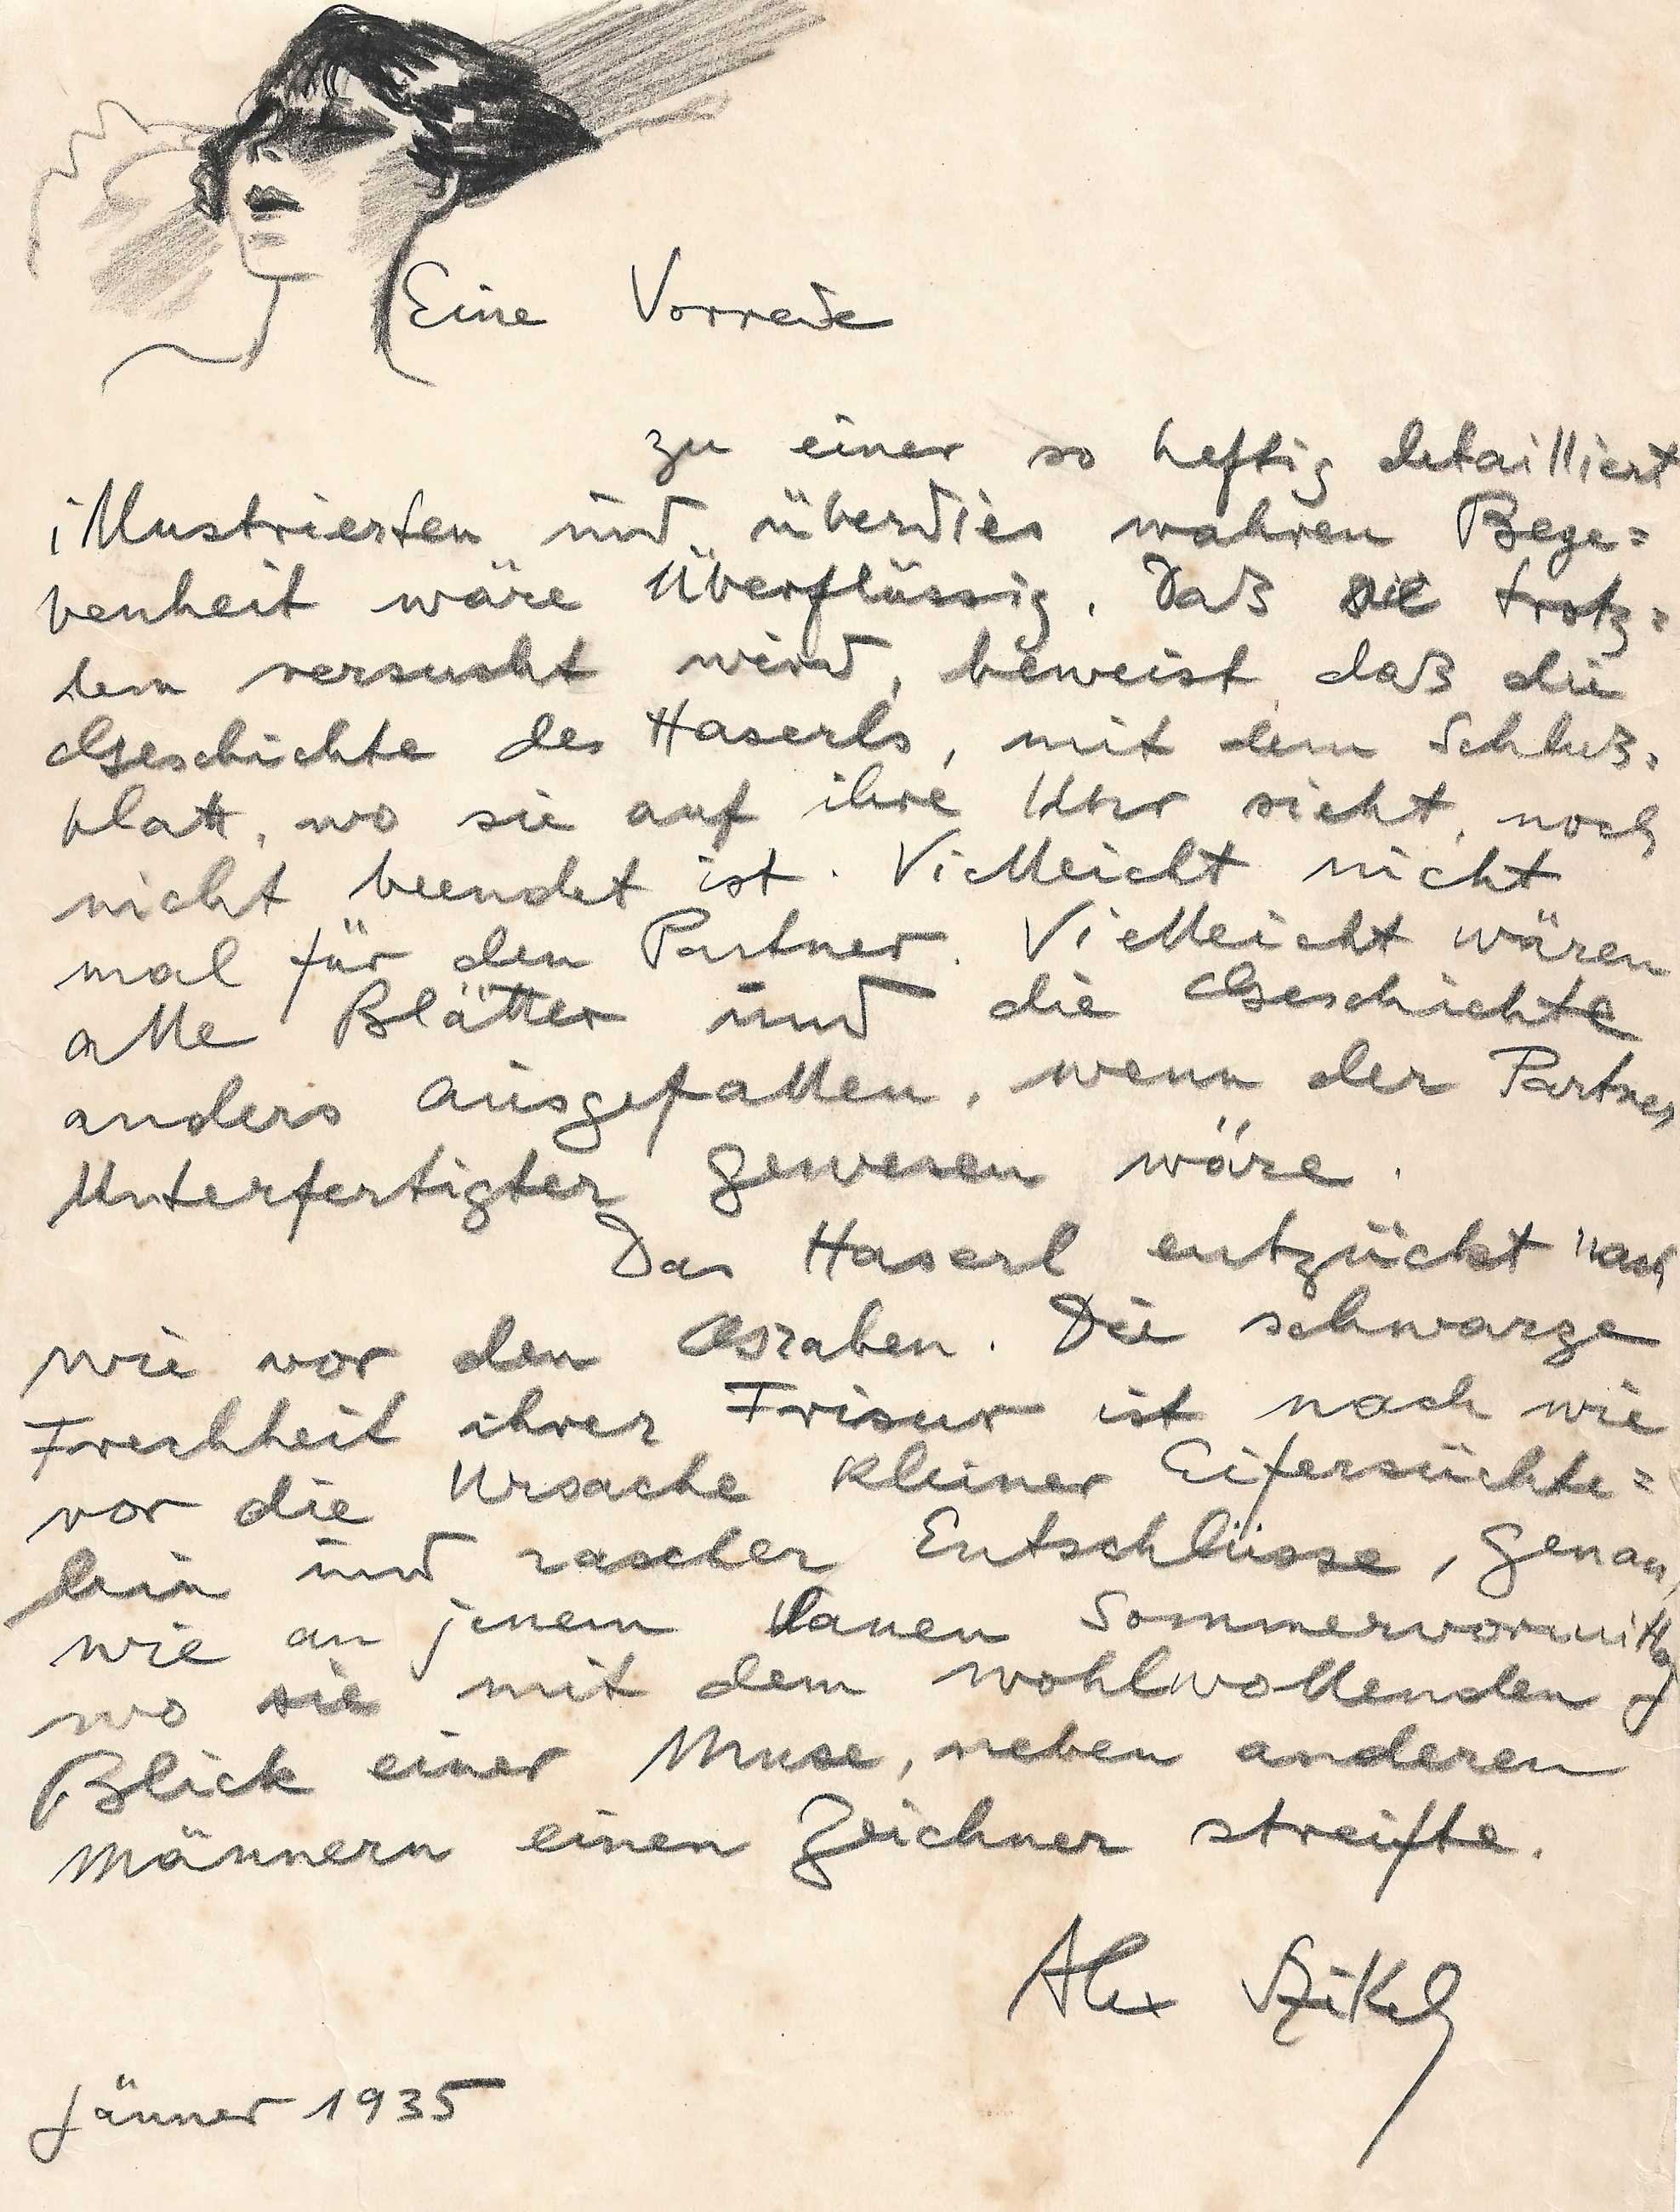 Eine Vorrede
zu einer so heftig detailliert
illustrierten und überdies wahren Bege=
benheit wäre überflüssig. Daß sie trotz=
dem versucht wird, beweist, daß die
Geschichte des Haserls, mit dem Schluß=
blatt, wo sie auf ihre Uhr sieht, noch
nicht beendet ist. Vielleicht nicht
mal für den Partner. Vielleicht wären
alle Blätter und die Geschichte
anders ausgefallen, wenn der Partner
Unterfertigter gewesen wäre.
Das Haserl entzückt nach
wie vor den Graben. Die schwarze
Frechheit ihrer Frisur ist nach wie
vor die Ursache kleiner Eifersüchte=
lein und rascher Entschlüsse, genau,
wie an jenem blauen Sommervormittag
wo sie mit dem wohlwollenden
Blick einer Muse, neben anderen
Männern einen Zeichner streifte.
Alex
Jänner 1935